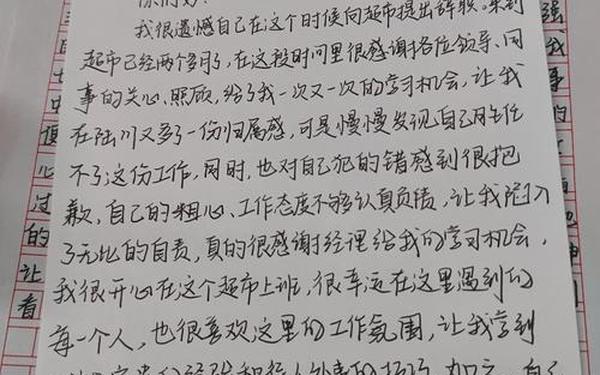 你们好!
我很遗憾自己在这个时候向超市提出辞职。来到
超市已经两个多月了,在这段时间里很感谢各位领导、同
事的关心、照顾,给了我一次又一次的学习机会,让我
在陆川又多了一份归属感,可是慢慢发现自己胜任
不了这份工作,同时,也对自己犯的错感到很抱
歉,自己的粗心、工作态度不够认真负责,让我陷入
了无比的自责,真的很感谢经理给我的学习机会,
我很开心在这个超市上班,很幸运在这里遇到的
每一个人,也很喜欢这里的工作氛围,让我学到
强
我
事
便
心
过
的
让
看